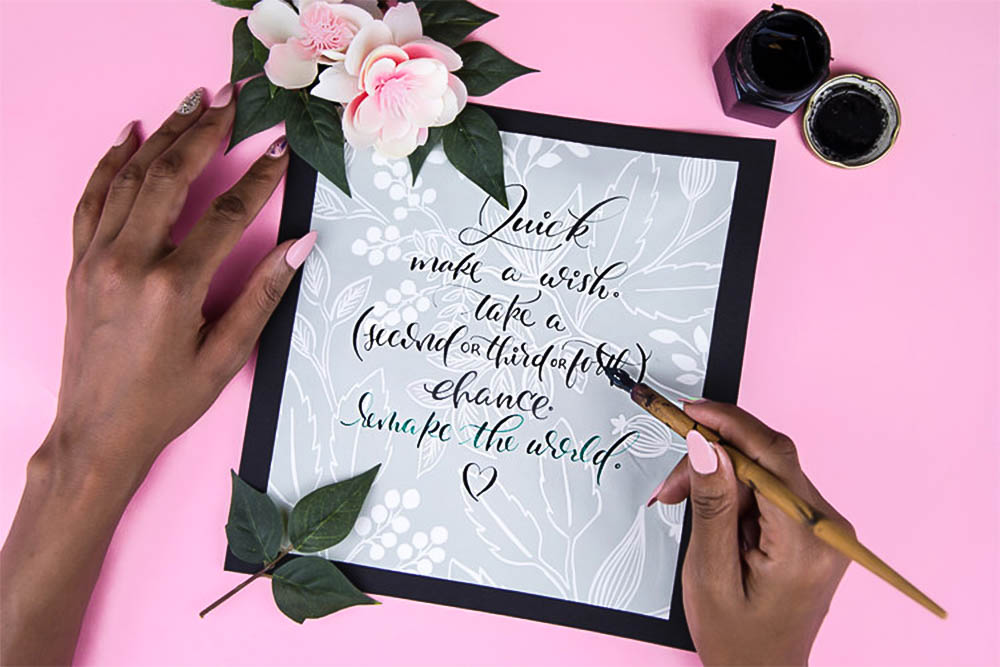 Quick
make a wish.
take a
(second or third or forth)
chance.
remake the world.